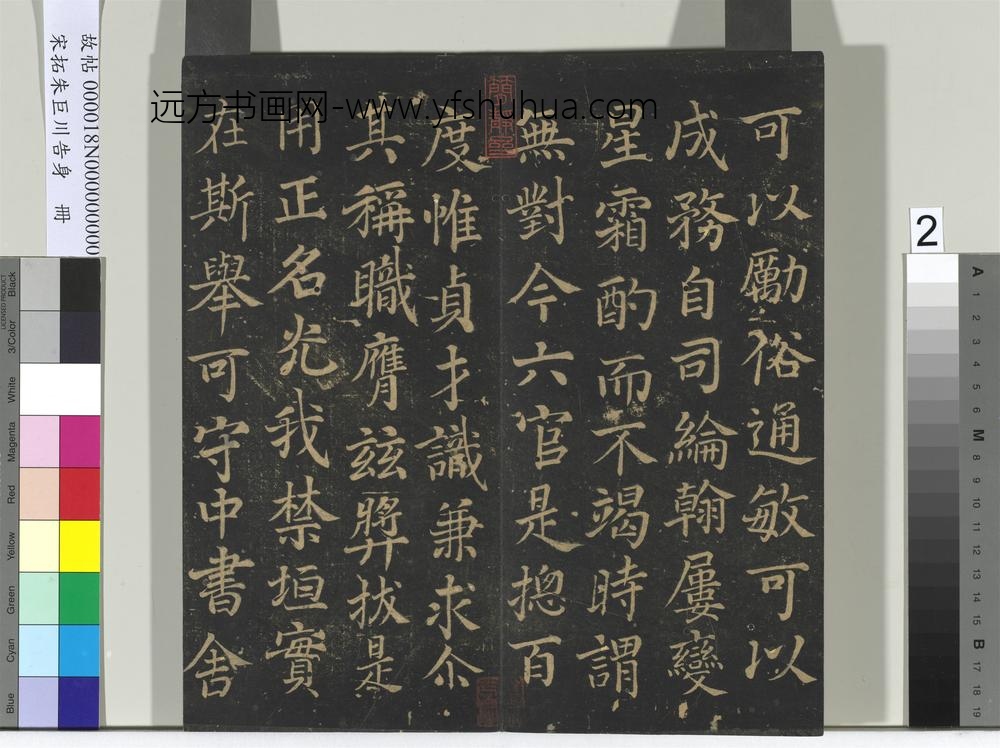 可以勵俗通敏可以
成務自司綸翰屢變
星霜酌而不竭時謂
無對今六官是揔百
度惟貞才識兼求尒
具稱職膺茲奬拔是
用正名光我禁垣實
在斯舉可守中書舍
远方书画网-www.yfshuhua.com
故帖 000018N000000000
宋拓朱巨川告身 冊
2
LICENSED PRODUCT
Black
3/Color
White
Magenta
Red
Yellow
Green
Cyan
Blue
A
1
2
3
4
5
6
M
8
9
10
11
12
13
14
15
B
17
18
19